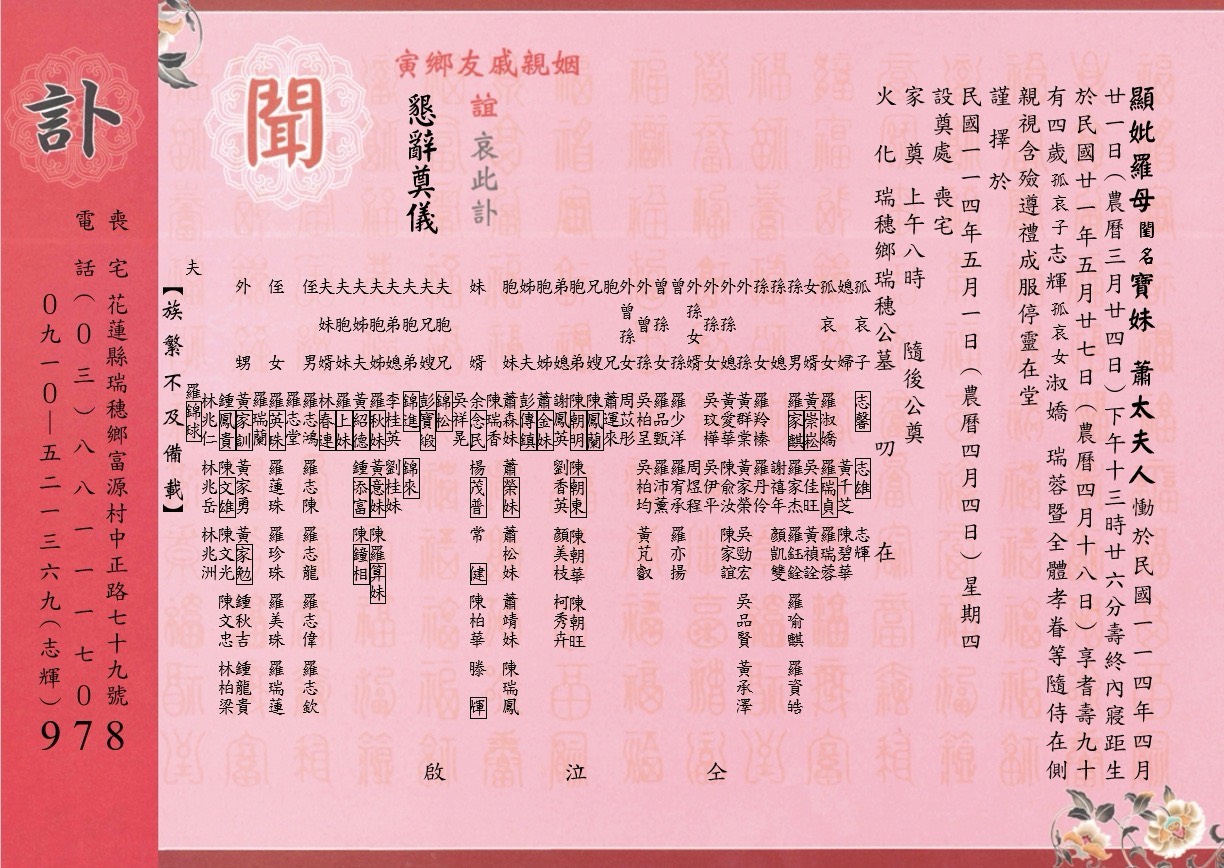 顯妣羅母閨名寶妹 蕭太夫人慟於民國一一四年四月
廿一日(農曆三月廿四日)下午十三時廿六分壽終內寢距生
於民國廿一年五月廿七日(農曆四月十八日)享耆壽九十
有四歲孤哀子志輝孤哀女淑嬌 瑞蓉暨全體孝眷等隨侍在側
親視含殮遵禮成服停靈在堂
謹擇於
民國一一四年五月一日(農曆四月四日)星期四
設奠處 喪宅
家奠 上午八時 隨後公奠
火化 瑞穗鄉瑞穗公墓 叨在
姻親戚友鄉寅
誼 哀此訃
聞
懇辭奠儀
孤哀子 志馨 志雄 志輝
媳婦 黃千芝 陳碧華
孤哀女 羅淑嬌 羅瑞貞 羅瑞蓉
女婿 黃崇崧 吳佳旺 黃禎詮
孫男 羅家麒 羅家杰 羅鈺銓 羅喻麒 羅資皓
孫媳 謝禧年 顏凱雙
孫女 羅羚榛 羅丹伶
外孫 黃群棠 黃家榮 吳勁宏 吳品賢 黃承澤
外孫媳 黃愛華 陳俞汝 陳家誼
外孫女 吳玟樺 吳伊平
外孫女婿 周煜程
曾孫 羅少洋 羅宥承 羅亦揚
曾孫女 羅品甄 羅沛薰
外曾孫 吳柏呈 吳柏均 黃芃叡
外曾孫女 周苡彤
胞兄 蕭運來
兄嫂 陳鳳蘭
胞弟 陳朝明 陳朝東 陳朝華 陳朝旺
弟媳 謝鳳英 劉香英 顏美枝 柯秀卉
胞姊 蕭金妹
姊夫 彭傳鎮
胞妹 蕭森妹 蕭榮妹 蕭松妹 蕭靖妹 陳瑞鳳
陳瑞香
妹婿 余念民 楊茂晋 常健 陳柏華 滕惲
吳祥晃
夫胞兄 錦松
夫兄嫂 彭寶緞
夫胞弟 錦進 錦來
夫弟媳 李桂英 劉桂妹
夫胞姊 羅秋妹 黃意妹 陳羅算妹
夫姊夫 黃紹德 鍾添富 陳鐘相
夫胞妹 羅上妹
夫妹婿 林春連
侄男 羅志鴻 羅志陳 羅志龍 羅志偉 羅志欽
羅志堂
侄女 羅英珠 羅蓮珠 羅珍珠 羅美珠 羅瑞蓮
羅瑞蘭
外甥 黃家訓 黃家勇 黃家勉 鍾秋吉 鍾龍貴
鍾鳳貴 陳文雄 陳文光 陳文忠 林柏梁
林兆仁 林兆岳 林兆洲
夫 羅錦球
【族繁不及備載】
仝泣啟
訃
喪宅 花蓮縣瑞穗鄉富源村中正路七十九號
電話(0三)八八一一一一七0
0九一0—五二一三六九(志輝)
978